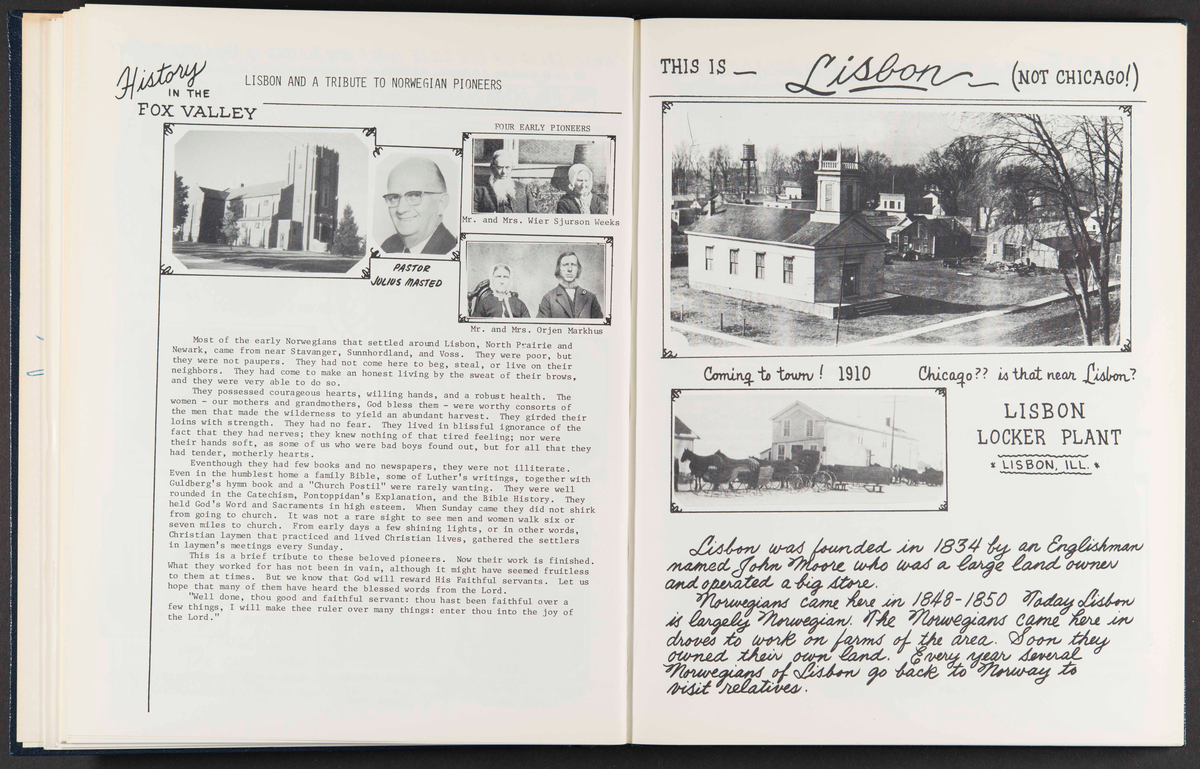 History
IN THE
FOX VALLEY
LISBON AND A TRIBUTE TO NORWEGIAN PIONEERS
FOUR EARLY PIONEERS
Mr. and Mrs. Wier Sjurson Weeks
PASTOR
JULIUS MASTED
Mr. and Mrs. Orjen Markhus
Most of the early Norwegians that settled around Lisbon, North Prairie and
Newark, came from near Stavanger, Sunnhordland, and Voss. They were poor, but
they were not paupers. They had not come here to beg, steal, or live on their
neighbors. They had come to make an honest living by the sweat of their brows,
and they were very able to do so.
They possessed courageous hearts, willing hands, and a robust health. The
women - our mothers and grandmothers, God bless them - were worthy consorts of
the men that made the wilderness to yield an abundant harvest. They girded their
loins with strength. They had no fear. They lived in blissful ignorance of the
fact that they had nerves; they knew nothing of that tired feeling; nor were
their hands soft, as some of us who were bad boys found out, but for all that they
had tender, motherly hearts.
Eventhough they had few books and no newspapers, they were not illiterate.
Even in the humblest home a family Bible, some of Luther's writings, together with
Guldberg's hymn book and a "Church Postil" were rarely wanting. They were well
rounded in the Catechism, Pontoppidan's Explanation, and the Bible History. They
held God's Word and Sacraments in high esteem. When Sunday came they did not shirk
from going to church. It was not a rare sight to see men and women walk six or
seven miles to church. From early days a few shining lights, or in other words,
Christian laymen that practiced and lived Christian lives, gathered the settlers
in laymen's meetings every Sunday.
This is a brief tribute to these beloved pioneers. Now their work is finished.
What they worked for has not been in vain, although it might have seemed fruitless
to them at times. But we know that God will reward His Faithful servants. Let us
hope that many of them have heard the blessed words from the Lord.
"Well done, thou good and faithful servant: thou hast been faithful over a
few things, I will make thee ruler over many things: enter thou into the joy of
the Lord."
THIS IS — Lisbon — (NOT CHICAGO!)
Coming to town! 1910 Chicago?? is that near Lisbon?
LISBON
LOCKER PLANT
* LISBON, ILL. *
Lisbon was founded in 1834 by an Englishman
named John Moore who was a large land owner
and operated a big store.
Norwegians came here in 1848-1850 Today Lisbon
is largely Norwegian. The Norwegians came here in
droves to work on farms of the area. Soon they
owned their own land. Every year several
Norwegians of Lisbon go back to Norway to
visit relatives.